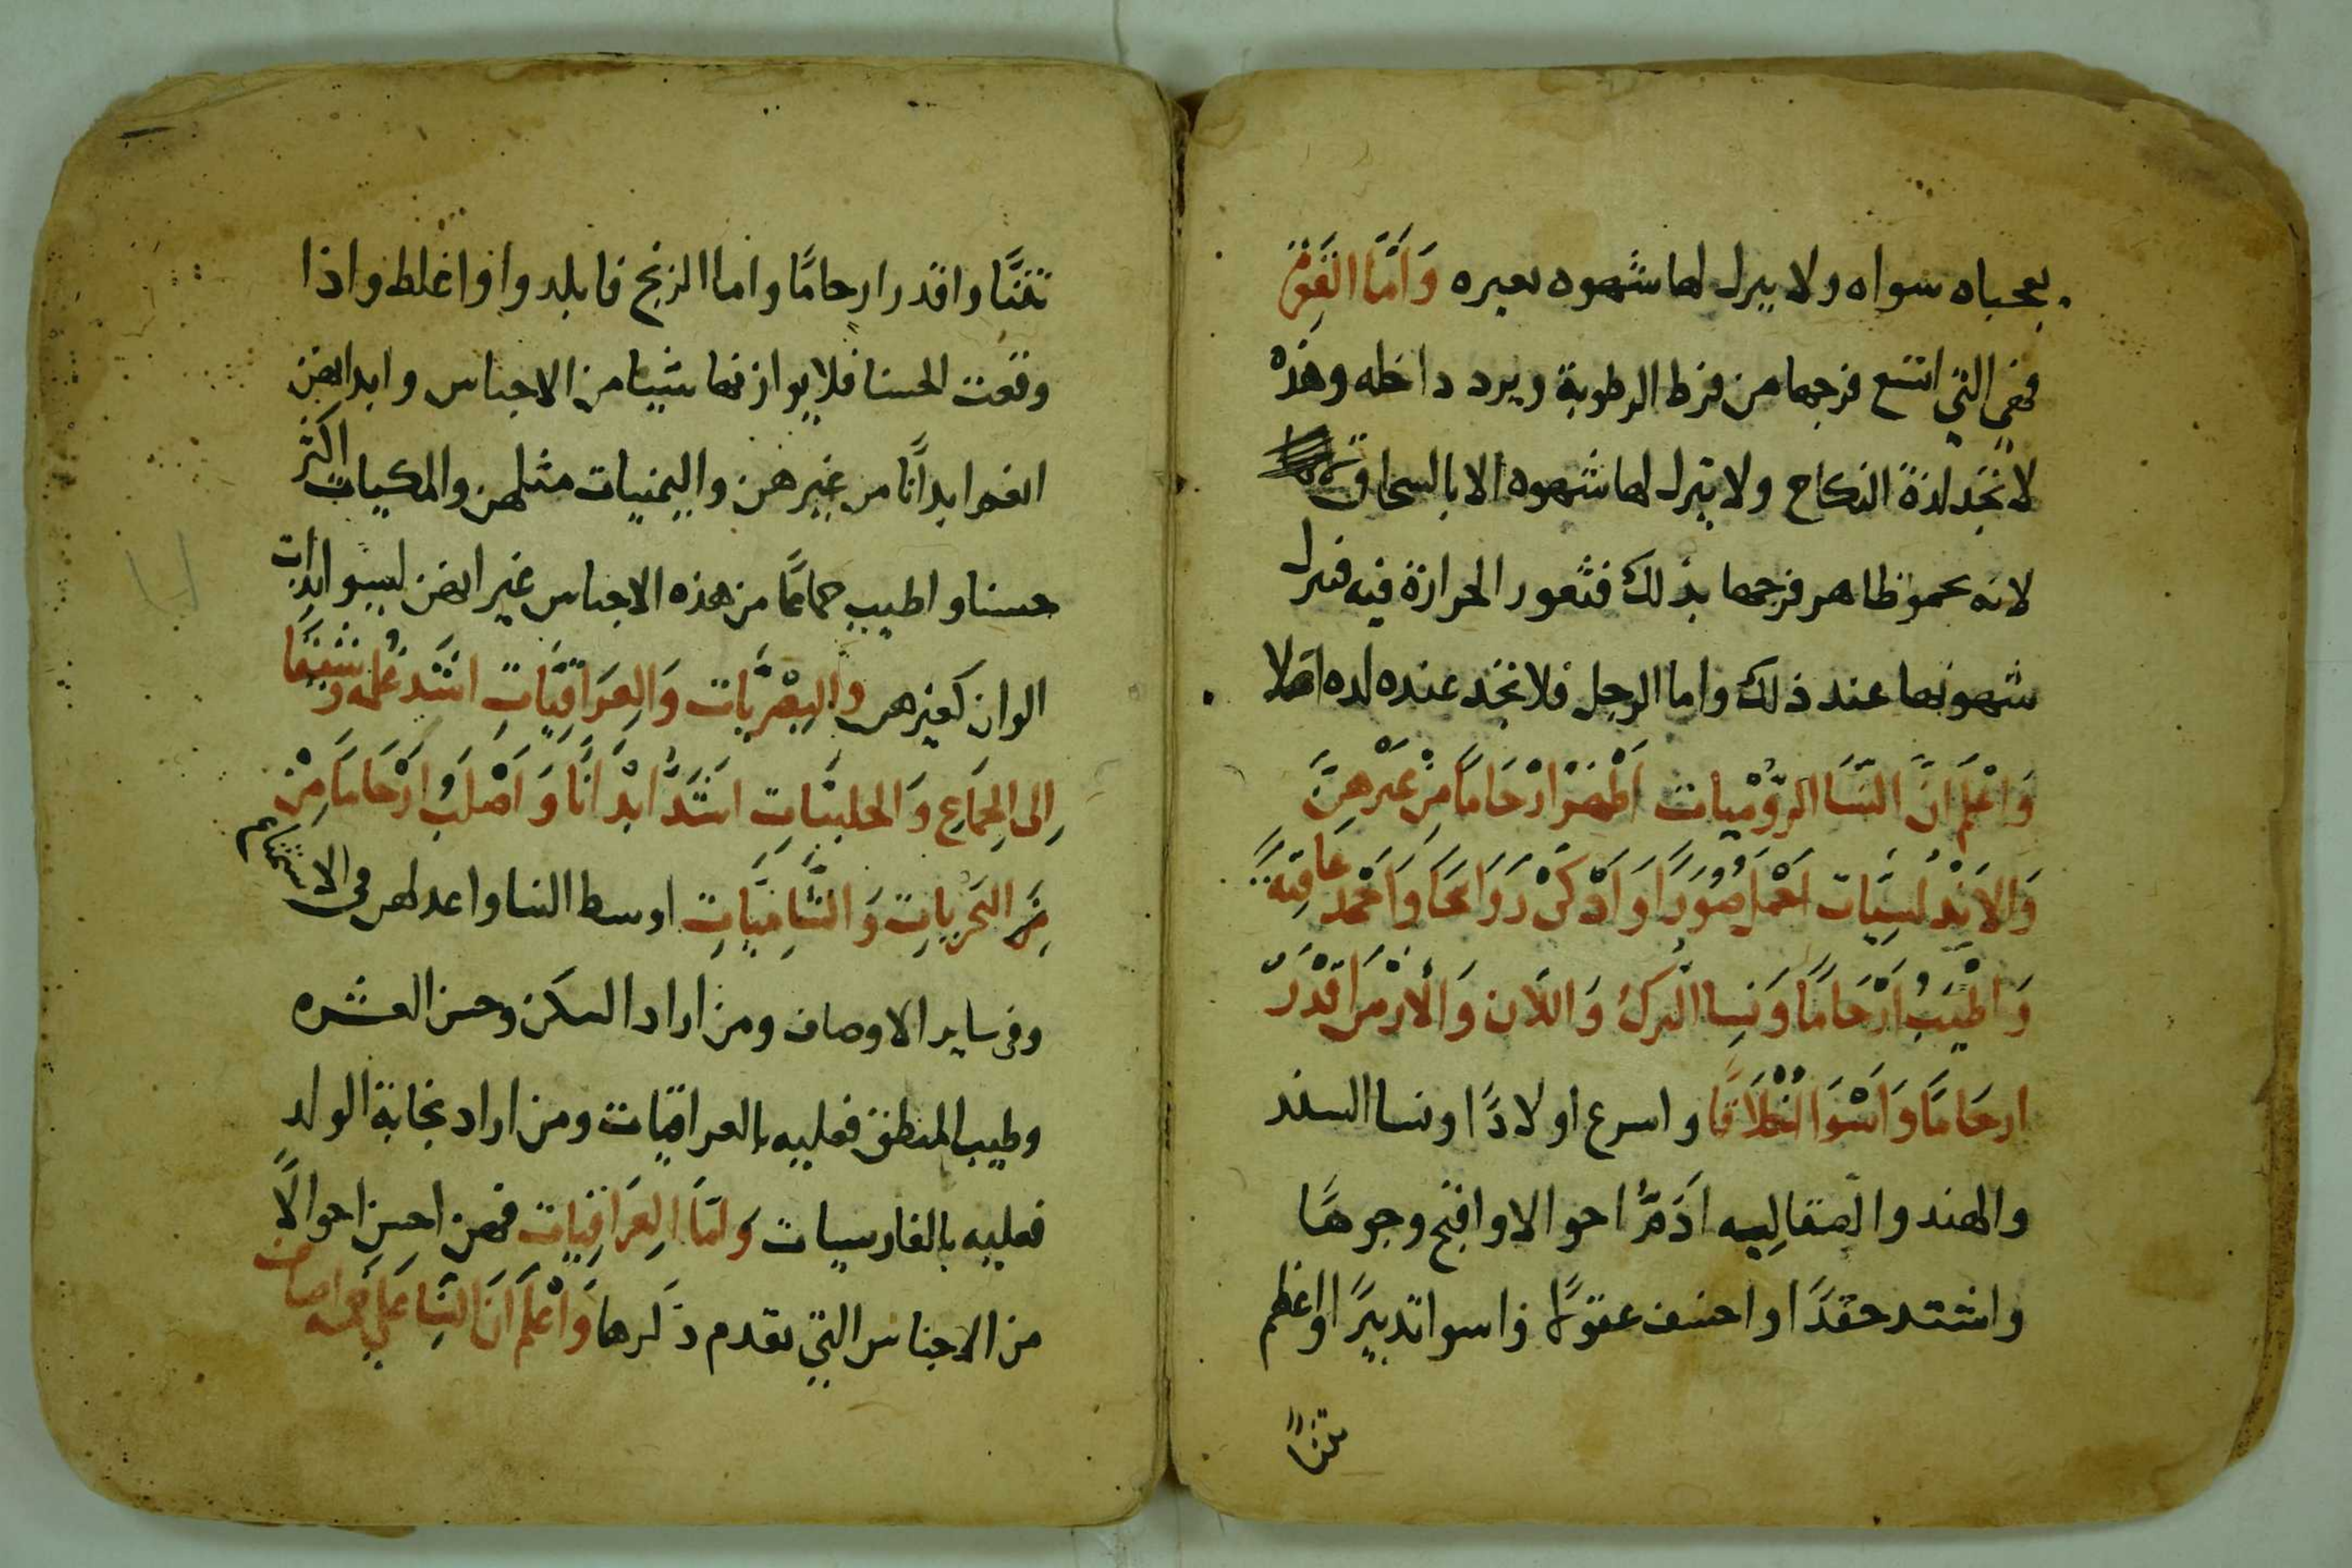 بعحباه سواه ولا ينزل لها شهوه بعيره وَامَّا القَعِرَة
فهي التي اتسع فرجها من فرط الرطوبة ويرد داخله وهذه
لا تجد لذة النكاح ولا ينزل لها شهوه الا بالسحاق
لانه يحمو ظاهر فرجها بذلك فتعور الحرارة فيه فتنزل
شهوتها عند ذلك واما الرجل فلا تجد عنده لده اصلا
وَاعْلَم انَّ النِّسَا الرُّوْميات اَطْهَرْ ارْحَامًا مِنْ غَيْرهِنَّ
وَالاَنْدُلسِيَّات اَجْمَل صُوَرًا وَاذْكَرْ رَوَايحًا وَاحْمَد عَاقِبَة
وَاطْيَبُ ارْحَامًا وَنِسا الترك وَاللَّان وَالأرْمَن اقْذَرُ
ارحَامًا وَاسْوَا اخْلَاقًا واسرع اولادًا ونسا السند
والهند والصقالبه اَذَمَّ احوالا واقبح وجوهًا
واشتد حقدًا واخفف عقولًا واسوا تدبيرًا واعظم
تتنًا
نتنًا واقدر ارحامًا واما الزنج فابلد وا واغلظ واذا
وقعت الحسنا فلا يوازنها شيئا من الاجناس وابدانهن
انعم ابدانًا من غيرهن واليمنيات مثلهن والمكيات اكثر
حسنا واطيب جماعًا من هذه الاجناس غير انهن ليسو بذات
الوان كغيرهن والبِصْرِيَّات وَالعِرَاقيَّاتِ اشَد غُلمه وشبقًا
اِلى الجِمَاعِ وَالحلبيَّاتِ اشَدَّ ابْدَانًا وَاصْلَبُ ارْحَامًا مِنْ
مِنَ البَحْرِيَاتِ وَالشَّامِيَّاتِ اوسط النسا واعدلهن فى الاستمتاع
وفى ساير الاوصاف ومن اراد السكن وحسن العشره
وطيب المنطق فعليه بالعراقيات ومن اراد نجابة الولد
فعليه بالفارسيات وَامَّا العِرَاقِيات فهن احسن احوالًا
من الاجناس التي تقدم ذكرها وَاعْلَمَ انَّ النِسَا عَلى خمسه اصناف